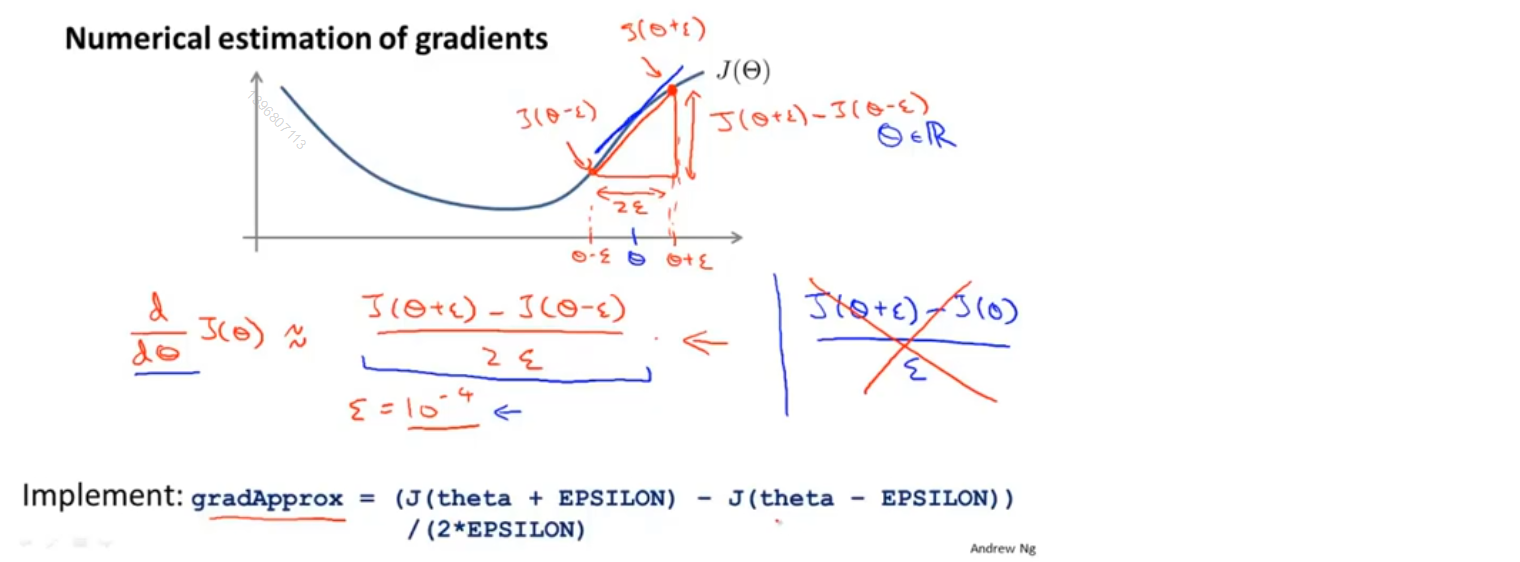 Numerical estimation of gradients
J(θ+ε)
J(Θ)
1396807113
J(θ-ε)
J(θ+ε)-J(θ-ε)
θ∈ℝ
2ε
θ-ε θ θ+ε
d/dθ J(θ) ≈ J(θ+ε) - J(θ-ε) / 2ε ←
J(θ+ε)-J(θ) / ε
ε = 10⁻⁴ ←
Implement: gradApprox = (J(theta + EPSILON) - J(theta - EPSILON))
/(2*EPSILON)
Andrew Ng